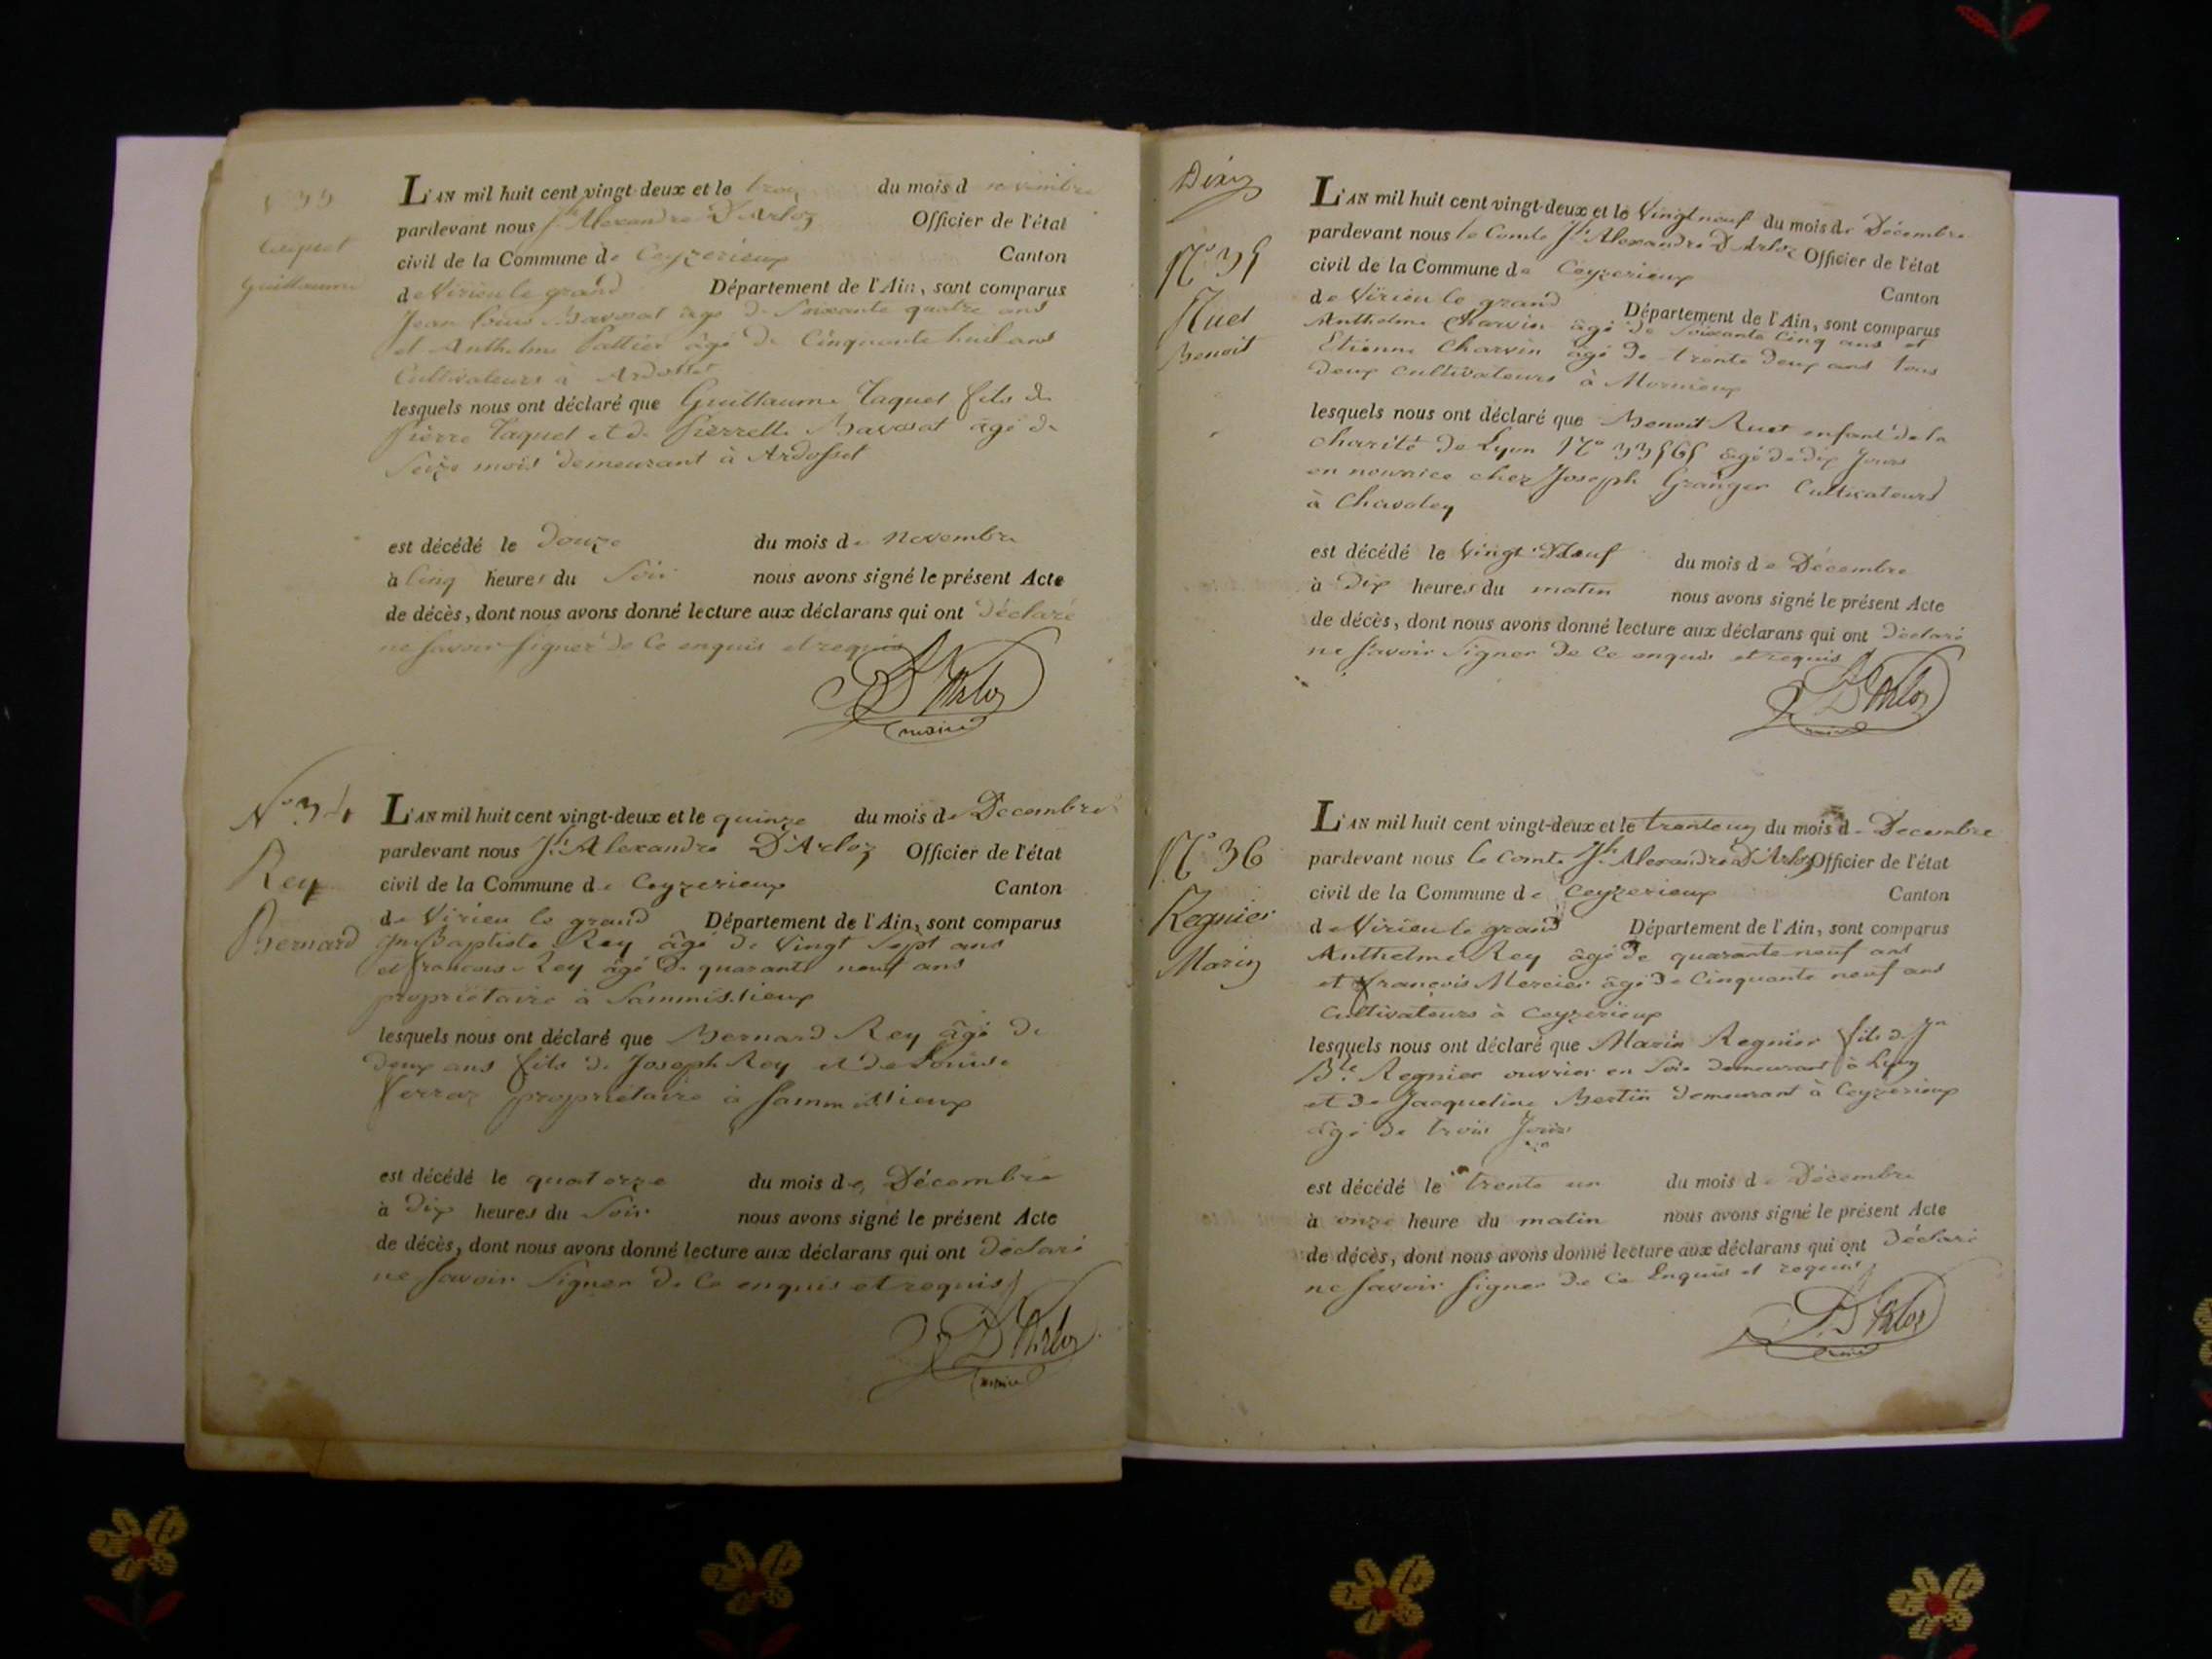 N° 33
Taquet
Guillaume
L'AN mil huit cent vingt-deux et le du mois d novembre
pardevant nous Jh Alexandre D'Arloz Officier de l'état
civil de la Commune de Ceyzerieux Canton
de Virieu le grand Département de l'Ain, sont comparus
Jean Louis Bavosat âgé de Soixante quatre ans
et Anthelme Pattier âgé de Cinquante huit ans
Cultivateurs à Ardosset
lesquels nous ont déclaré que Guillaume Taquet fils de
Pierre Taquet et de Pierrette Bavosat âgé de
Seize mois demeurant à Ardosset
est décédé le douze du mois de Novembre
à Cinq heures du Soir nous avons signé le présent Acte
de décès, dont nous avons donné lecture aux déclarans qui ont déclaré
ne savoir signer de ce enquis et requis
D'Arloz
maire
N° 34
Rey
Bernard
L'AN mil huit cent vingt-deux et le quinze du mois de Decembre
pardevant nous Jh Alexandre D'Arloz Officier de l'état
civil de la Commune de Ceyzerieux Canton
de Virieu le grand Département de l'Ain, sont comparus
Jn Baptiste Rey âgé de Vingt Sept ans
et francois Rey âgé de quarante neuf ans
propriétaire à Sammissieux
lesquels nous ont déclaré que Bernard Rey âgé de
deux ans fils de Joseph Rey et de Louise
ferraz propriétaire à Sammissieux
est décédé le quatorze du mois de Décembre
à Dix heures du Soir nous avons signé le présent Acte
de décès, dont nous avons donné lecture aux déclarans qui ont déclaré
ne savoir Signer de ce enquis et requis
D'Arloz
maire
N° 35
Ruet
Benoit
L'AN mil huit cent vingt-deux et le Vingt neuf du mois de Décembre
pardevant nous le Comte Jh Alexandre D'Arloz Officier de l'état
civil de la Commune de Ceyzerieux Canton
de Virieu le grand Département de l'Ain, sont comparus
Anthelme Charvin âgé de Soixante Cinq ans et
Etienne Charvin âgé de trente deux ans tous
deux cultivateurs à Mornieux
lesquels nous ont déclaré que Benoit Ruet enfant de la
charité de Lyon N° 33565 âgé de dix Jours
en nourrice chez Joseph Granger Cultivateurs
à Chavoley
est décédé le Vingt Neuf du mois de Décembre
à Dix heures du matin nous avons signé le présent Acte
de décès, dont nous avons donné lecture aux déclarans qui ont déclaré
ne Savoir Signer de ce enquis et requis
D'Arloz
maire
N° 36
Regnier
Marin
L'AN mil huit cent vingt-deux et le trente un du mois de Decembre
pardevant nous le comte Jh Alexandre D'Arloz Officier de l'état
civil de la Commune de Ceyzerieux Canton
de Virieu le grand Département de l'Ain, sont comparus
Anthelme Rey âgé de quarante neuf ans
et François Mercier âgé de Cinquante neuf ans
Cultivateurs à Ceyzerieux
lesquels nous ont déclaré que Marin Regnier fils de Jn
Bte Regnier ouvrier en Soie demeurant à Lyon
et de Jacqueline Bertin demeurant à Ceyzerieux
âgé de trois Jours
est décédé le trente un du mois de Décembre
à onze heure du matin nous avons signé le présent Acte
de décès, dont nous avons donné lecture aux déclarans qui ont déclaré
ne savoir signer de ce Enquis et requis
D'Arloz
maire